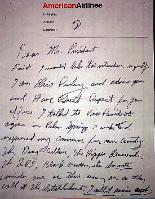 AmericanAirlines
Dear Mr. President
First I would like to introduce myself
I am Elvis Presley and admire you
and Have Great Respect for your
office. I talked to Vice President
Agnew in Palm Springs
expressed my concern for our country
The Drug Culture, The Hippie Elements,
The SDS, Black Panthers, etc do not
consider me as their enemy or as they
call it The Establishment. I call it America